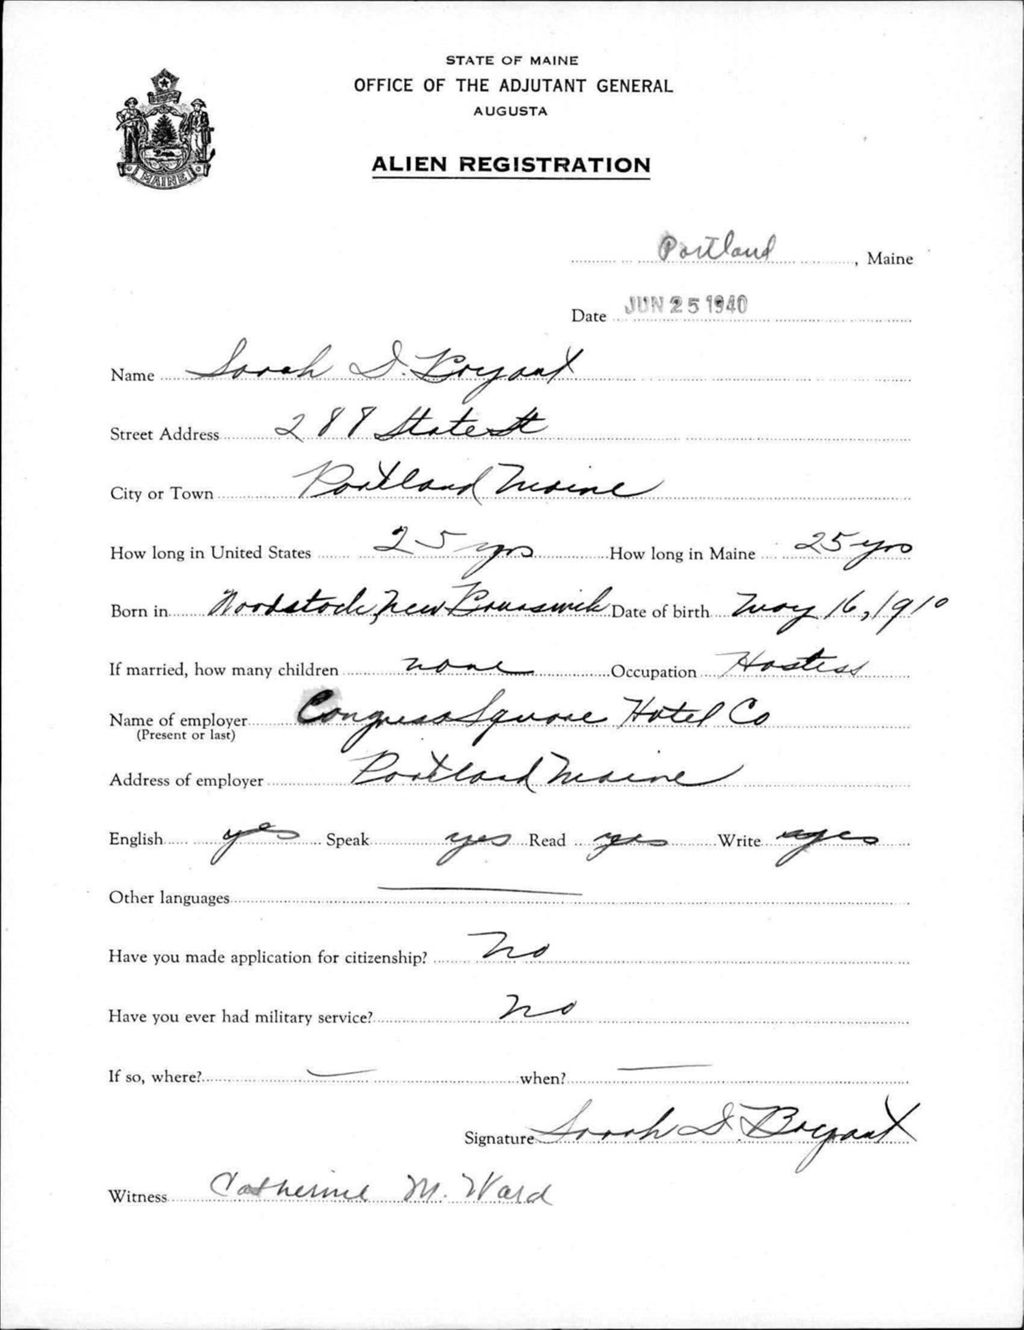 STATE OF MAINE
OFFICE OF THE ADJUTANT GENERAL
AUGUSTA
ALIEN REGISTRATION
MAINE
Portland, Maine
Date JUN 25 1940
Name Sarah D. Bryant
Street Address 288 State St
City or Town Portland Maine
How long in United States 25 yrs How long in Maine 25 yrs
Born in Woodstock, New Brunswick Date of birth May 16, 1910
If married, how many children none Occupation Hostess
Name of employer Congress Square Hotel Co
(Present or last)
Address of employer Portland Maine
English yes Speak yes Read yes Write yes
Other languages
Have you made application for citizenship? No
Have you ever had military service? No
If so, where? — when? —
Signature Sarah D. Bryant
Witness Catherine M. Ward